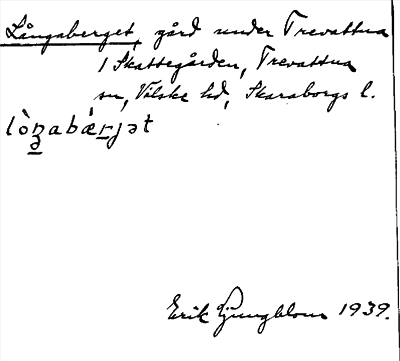 Långaberget, gård under Trevattna
1 Skattegården, Trevattna
sn, Vilske hd, Skaraborgs l.
lòŋabæ̀rjət
Erik Ljungblom 1939.